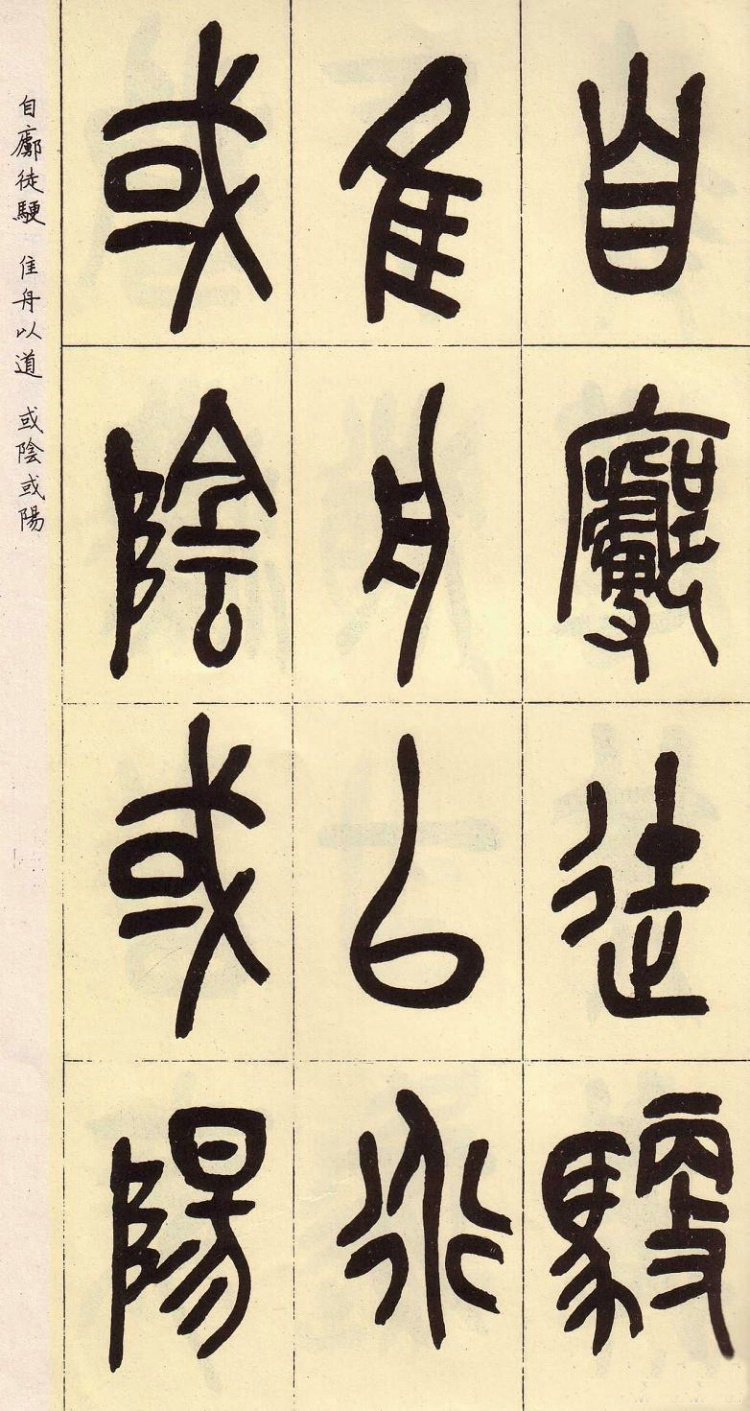 自廓徒馭
隹舟以道
或陰或陽
自廓徒 隹舟以道 或陰或陽